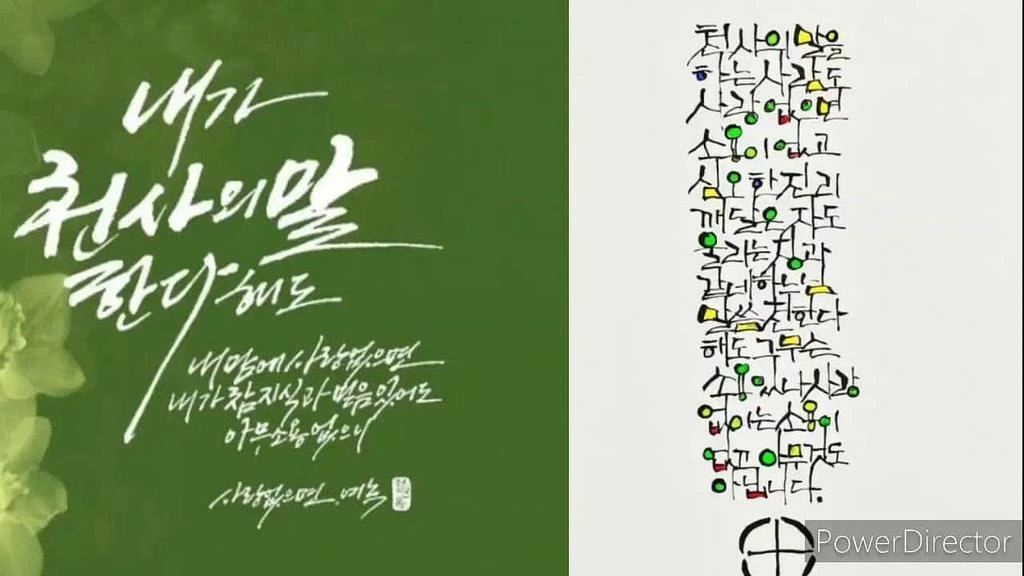 내가
천사의 말
한다 해도
내 맘에 사랑 없으면
내가 참 지식과 믿음 있어도
아무 소용 없으니
사랑 없으면
천사의 말을
하는 사람도
사랑 없으면
소용이 없고
심오한 진리
깨달은 자도
울리는 징과
같네 하나님
말씀 전한다
해도 그 무슨
소용 있나 사랑
없이는 소용이
없고 아무것도
아닙니다.
PowerDirector